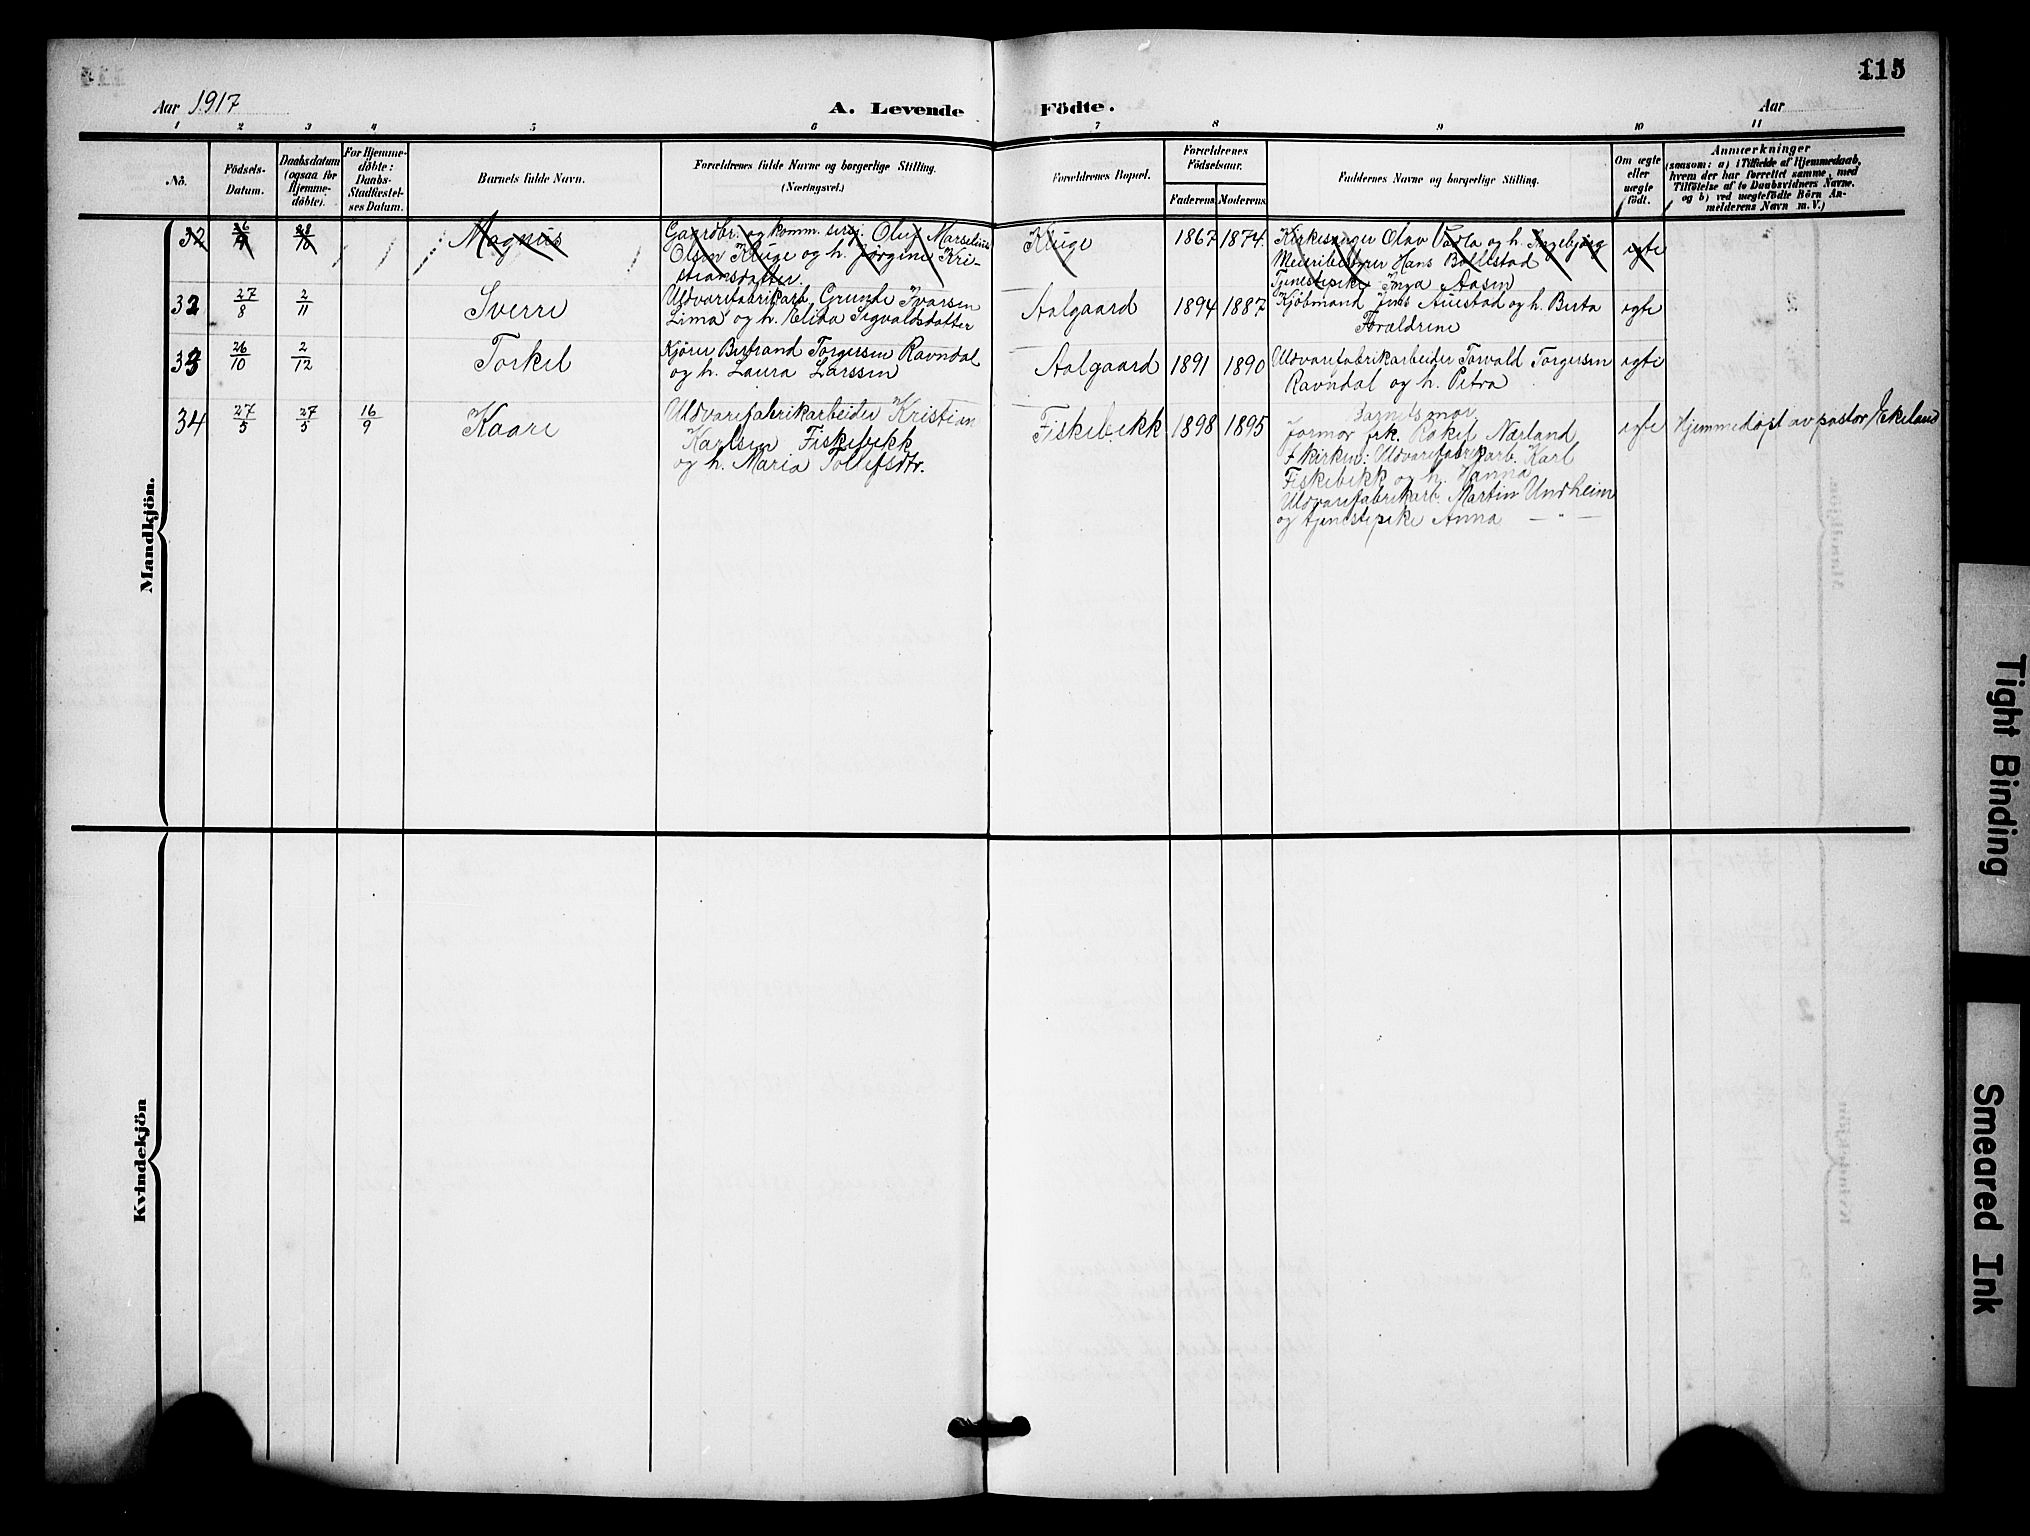 115
Aar 1917
A. Levende Födte.
Aar
1 2 3 4 5 6 7 8 9 10 11
No.
Födsels-
Datum.
Daabsdatum
(ogsaa for
Hjemme-
döbte).
For Hjemme-
döbte:
Daabs-
Stadfæstel-
ses Datum.
Barnets fulde Navn.
Forældrenes fulde Navne og borgerlige Stilling.
(Næringsvei.)
Forældrenes Bopæl.
Forældrenes
Födselsaar.
Faderens. Moderens.
Faddernes Navne og borgerlige Stilling.
Om ægte
eller
uægte
födt.
Anmærkninger
(saasom: a) i Tilfælde af Hjemmedaab,
hvem der har forrettet samme, med
Tilföielse af to Daabsvidners Navne.
og b) ved uægtefödte Börn An-
melderens Navn m. V.)
Mandkjön.
32 28/10 Magnus
Gaardbr. og komm. serg. Oluf Marselius
Olsen Kluge og h. Jørgine Kri-
stiansdatter.
Kluge 1867 1874.
Kirkesanger Olav Vadla og h. Ingebjørg
Meieribestyrer Hans Bollestad
Tjenestepike Inga Aasen
egte
32 27/8 2/11 Sverre
Uldvarefabrikarb. Grunde Ivarsen
Lima og h. Elida Sigvaldsdatter
Aalgaard 1894 1887
Kjöbmand Jens Auestad og h. Berta
Forældrene
egte
33 26/10 2/12 Torkel
Kjører Bertrand Torgersen Ravndal
og h. Laura Larssen
Aalgaard 1891 1890
Uldvarefabrikarbeider Torvald Torgersen
Ravndal og h. Petra
egte
34 27/5 27/5 16/9 Kaare
Uldvarefabrikarbeider Kristian
Karlsen Fiskebekk
og h. Maria Tollefsdtr.
Fiskebekk 1898 1895
Barnets mor
formor frk. Rakel Nærland,
I kirken: Uldvarefabrikarb. Karl
Fiskebekk og h. Hanna
Uldvarefabrikarb. Martin Undheim
og tjenestepike Anna — " —
egte
Hjemmedøpt av pastor Ekeland
Kvindekjön
Tight Binding
Smeared Ink